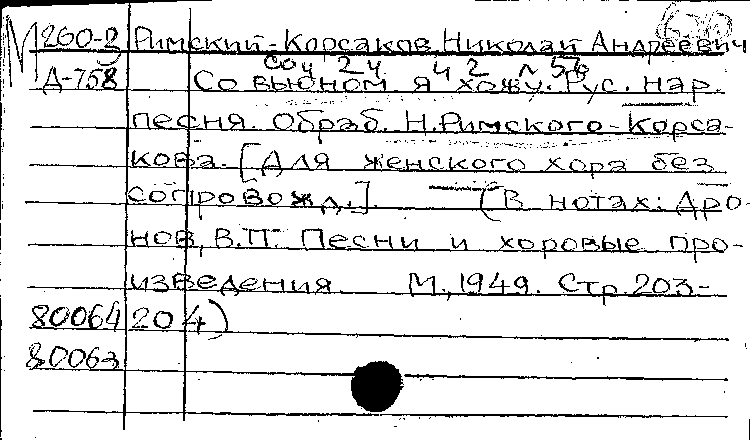 М 260-2 Римский-Корсаков, Николай Андреевич
соч 24 ч 2 № 58
Д-758 Со вьюном я хожу. Рус. нар.
песня. Обраб. Н.Римского-Корса-
кова. [Для женского хора без
сопровожд.]. (В нотах: Дро-
нов, В.П. Песни и хоровые про-
изведения. М., 1949. Стр. 203-
80064 204)
80063